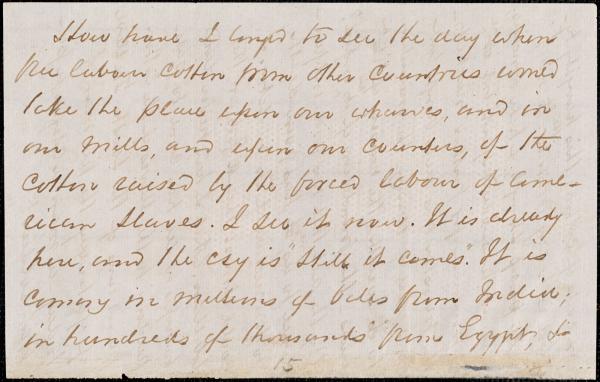 How have I long'd to see the day when
free labour cotton from other countries would
take the place upon our wharves, and in
our mills, and upon our counters, of the
cotton raised by the forced labour of Ame-
rican slaves. I see it now. It is already
here, and the cry is "still it comes". It is
coming in millions of bales from India;
in hundreds of thousands from Egypt, &
15